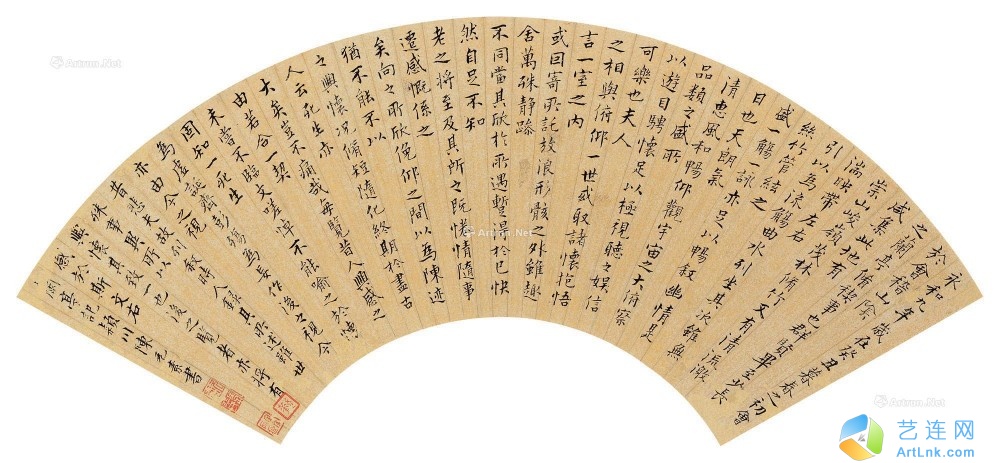 永和九年歲在癸丑暮春之初會
於會稽山陰
之蘭亭脩稧事也群賢畢至少長
咸集此地也
崇山峻嶺茂林脩竹又有清流激
湍映帶左右
引以為流觴曲水引坐其次雖無
絲竹管絃之
盛一觴一詠亦足以暢敘幽情是
日也天朗氣
清惠風和暢仰觀宇宙之大俯察
品類之盛所
以遊目騁懷足以極視聽之娛信
可樂也夫人
之相與俯仰一世或取諸懷抱悟
言一室之內
或因寄所託放浪形骸之外雖趣
舍萬殊靜躁
不同當其欣於所遇暫得於己快
然自足不知
老之將至及其所之既惓情隨事
遷感慨係之
矣向之所欣俛仰之間以為陳迹
猶不能不以
之興懷況脩短隨化終期於盡古
人云死生亦
大矣豈不痛哉每覽昔人興感之
由若合一契
未嘗不臨文嗟悼不能喻之於懷
固知一死生
為虛誕齊彭殤為妄作後之視今
亦由今之視
昔悲夫故列敘時人錄其所述雖世
殊事異所以
興懷其致一也後之覽者亦將有
感於斯文右
蘭亭 潁川陳元素書
Artron.Net
Artron.Net
Artron.Net
艺连网
ArtLnk.com